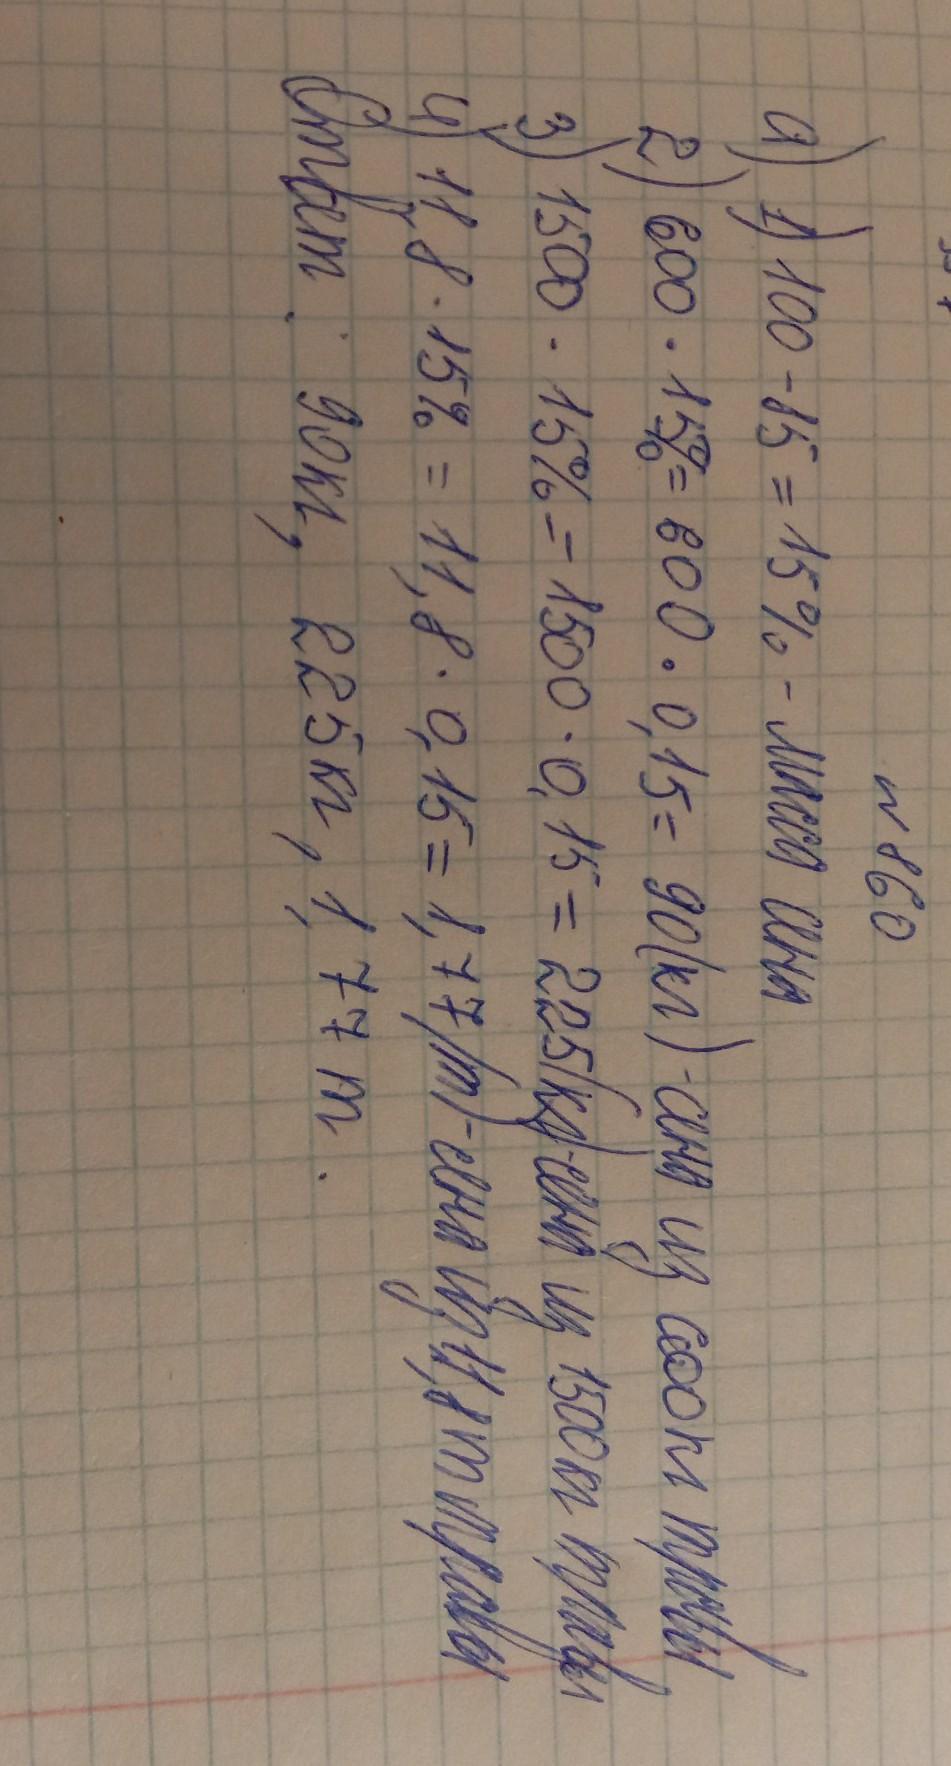 № 860
а) 1) 100 - 85 = 15% - масса сена
2) 600 · 15% = 600 · 0,15 = 90 (кг) - сена из 600 кг травы
3) 1500 · 15% = 1500 · 0,15 = 225 (кг) - сена из 1500 кг травы
4) 11,8 · 15% = 11,8 · 0,15 = 1,77 (т) - сена из 11,8 т травы
Ответ: 90кг, 225кг, 1,77 т.